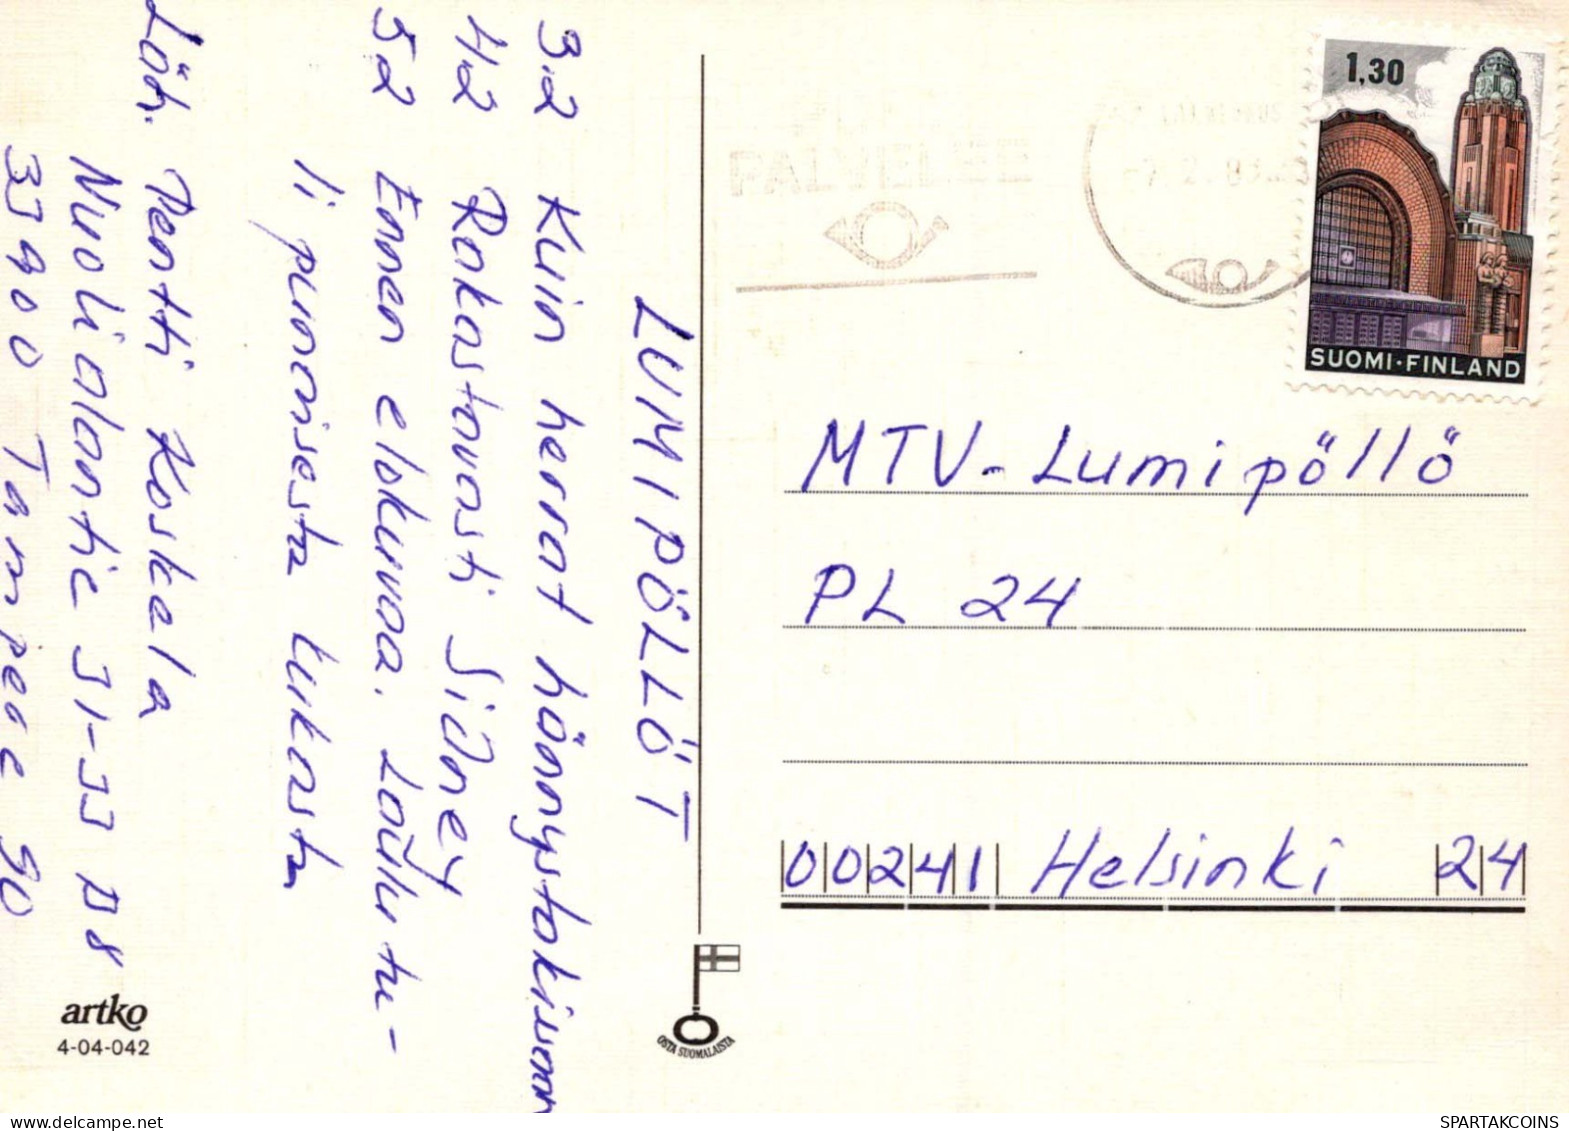 LUMIPÖLLÖT
3.2 Kuin herrat hönnystakisönn
4.2 Rakastavasti Sidney
5.2 Ennen elokuvaa. Löulu tu-
li punaisesta lukosta
Löh. Pentti Koskela
Nuolialantie 31-33 A 8
33900 Tampere 90
artko
4-04-042
OSTA SUOMALAISTA
PALVELEE
1,30
SUOMI·FINLAND
MTV-Lumipöllö
PL 24
00241 Helsinki 24
www.delcampe.net
SPARTAKCOINS